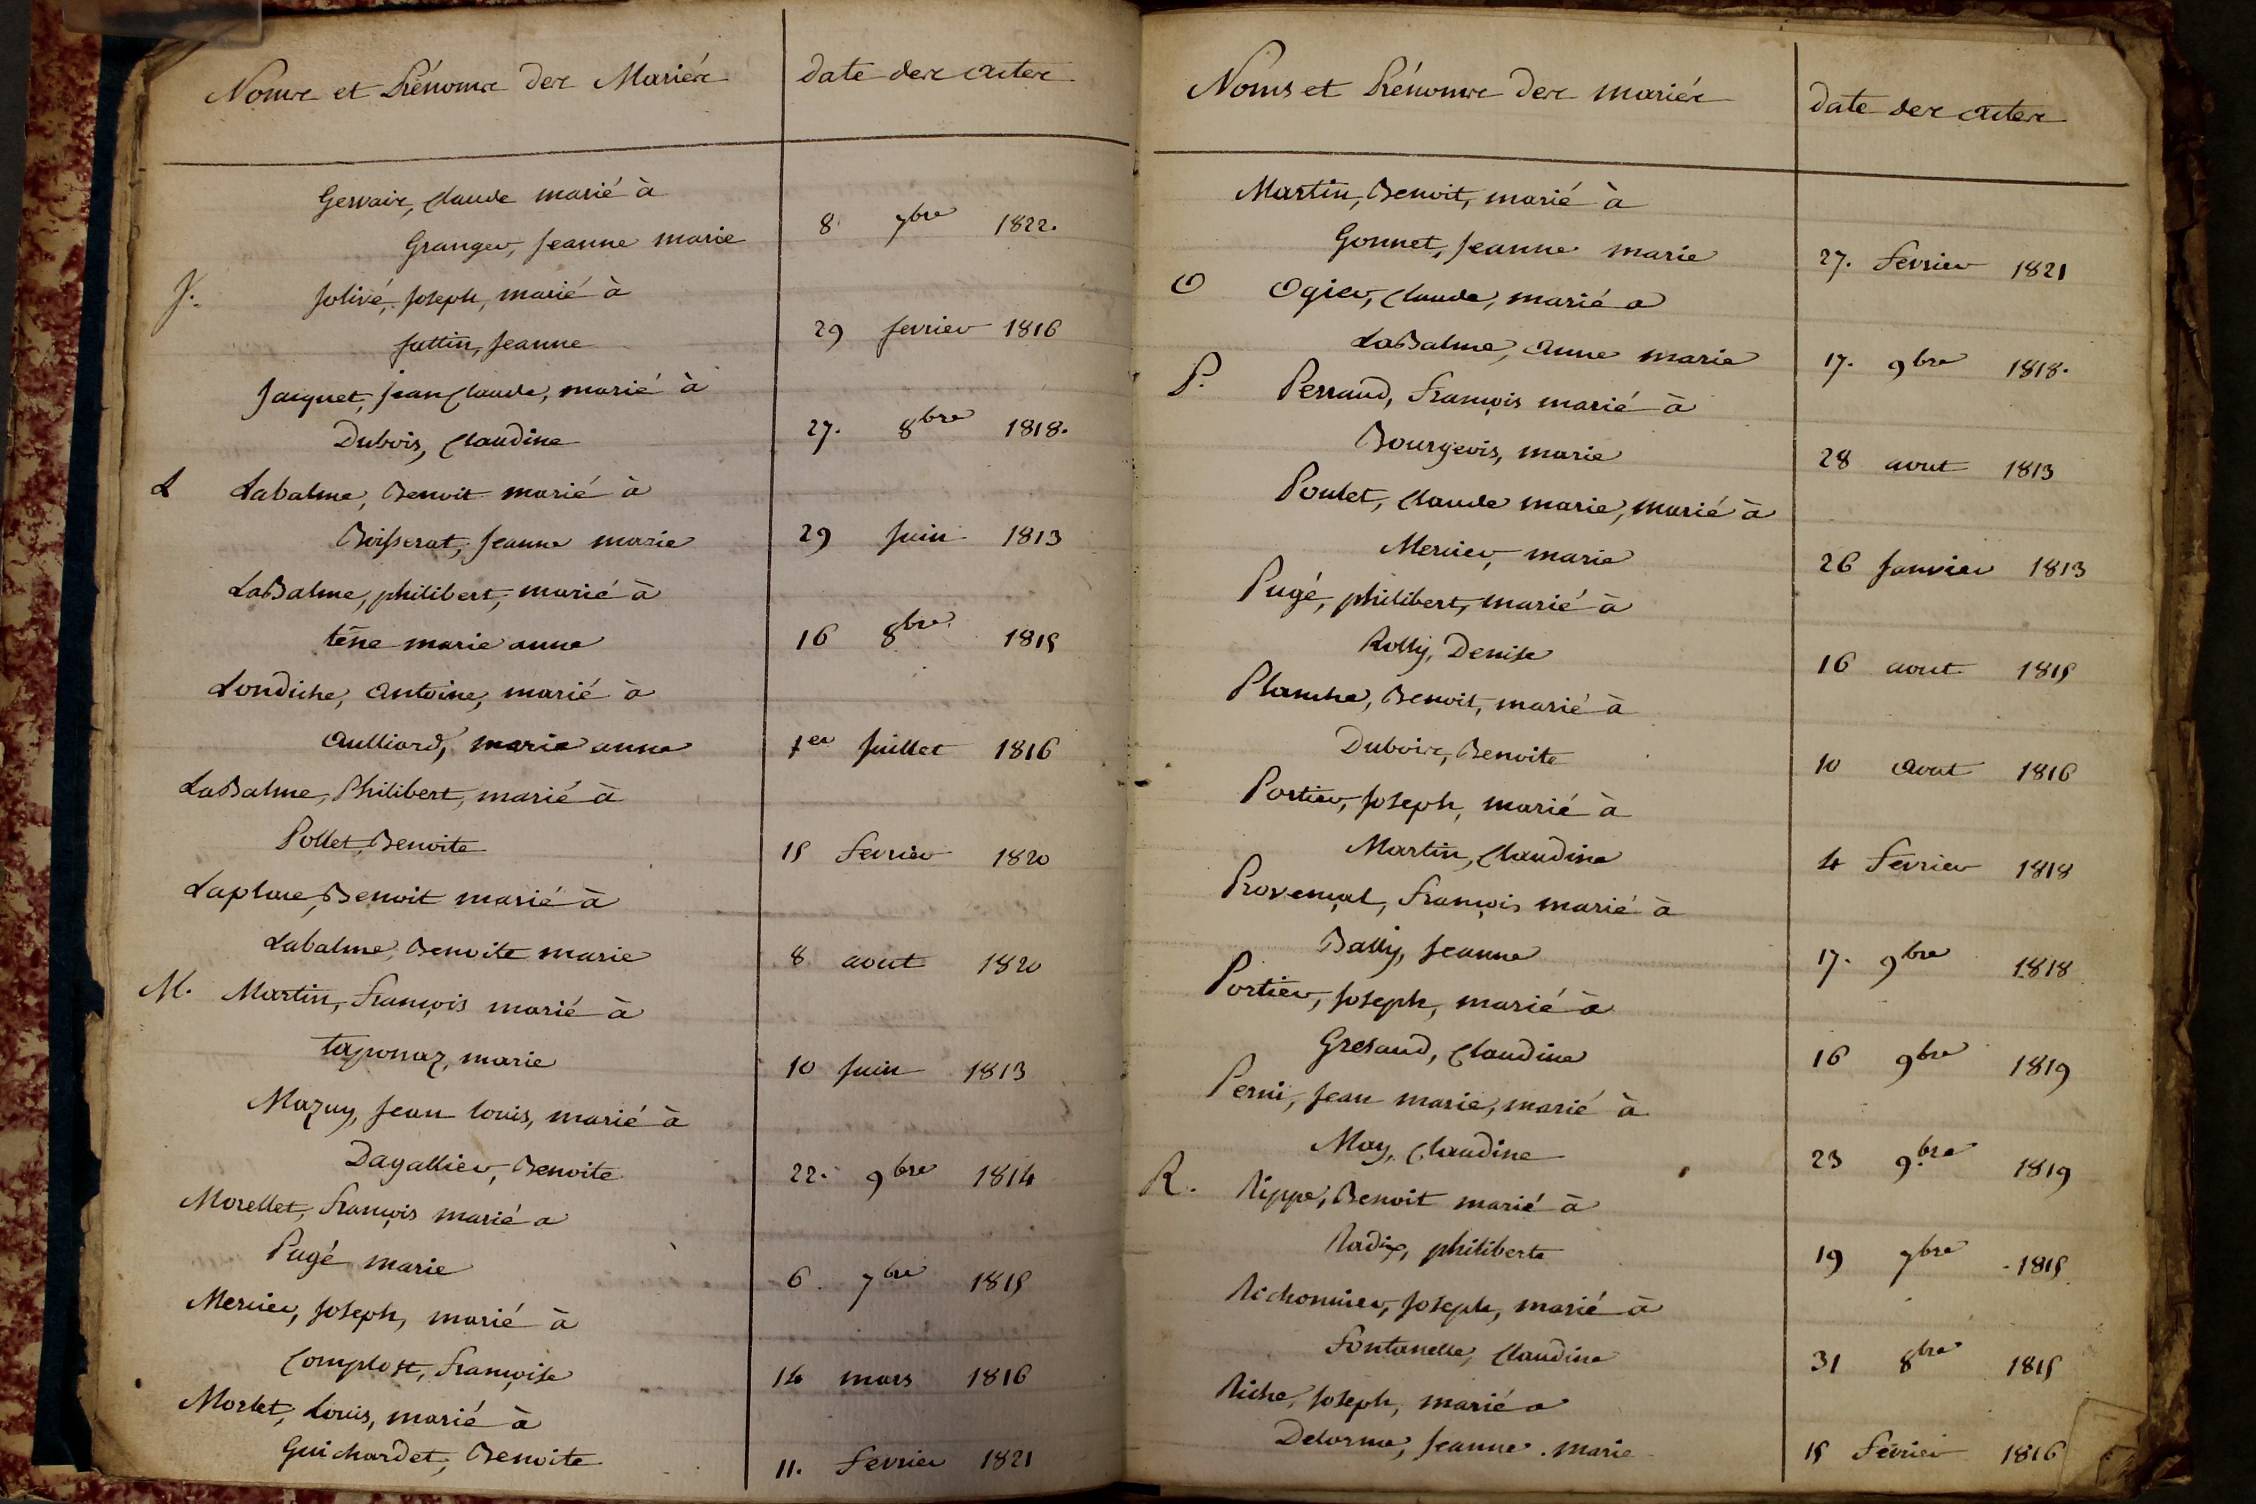 Noms et Prénoms des Mariés
date des actes
Gervais, Claude marié à
Granger, Jeanne marie 8 7bre 1822.
J. Jolivé, Joseph, marié à
Juttin, Jeanne 29 fevrier 1816
Jaiquet, Jean Claude, marié à
Dubois, Claudine 27. 8bre 1818.
L Labalme, Benoit marié à
Boisserat, Jeanne marie 29 Juin 1813
LaBalme, philibert, marié à
téne marie anne 16 8bre 1815
Londiche, Antoine, marié à
Aulliard, marie anne 1er Juillet 1816
LaBalme, Philibert, marié à
Pollet, Benoite 15 fevrier 1820
Laplace, Benoit marié à
Labalme, Benoite marie 8 aout 1820
M. Martin, François marié à
taponaz, marie 10 Juin 1813
Mazuy, Jean louis, marié à
Dagallier, Benoite 22. 9bre 1814
Morellet, François marié a
Pugé marie 6. 7bre 1815
Mercier, Joseph, marié à
Complost, Françoise 14 mars 1816
Morlet, Louis, marié à
Guichardet, Benoite 11. fevrier 1821
Noms et Prénoms des mariés
date des actes
Martin, Benoit, marié à
Gonnet, Jeanne marie 27. fevrier 1821
O Ogier, Claude, marié a
LaBalme, Anne marie 17. 9bre 1818.
P. Perraud, François marié à
Bourgeois, marie 28 aout 1813
Poulet, Claude marie, marié à
Mercier, marie 26 Janvier 1813
Pugé, philibert, marié à
Rolly, Denise 16 aout 1815
Planche, Benoit, marié à
Dubois, Benoite 10 Aout 1816
Portier, Joseph, marié à
Martin, Claudine 4 fevrier 1818
Provençal, François marié à
Bally, Jeanne 17. 9bre 1818
Portier, Joseph, marié à
Gresaud, Claudine 16 9bre 1819
Perni, Jean marie, marié à
May, Claudine 23 9bre 1819
R. Rippe, Benoit marié à
Radix, philiberte 19 7bre 1815
Richonnier, Joseph, marié à
Fontanelle, Claudine 31 8bre 1815
Riche, Joseph, marié a
Delorme, Jeanne. marie 15 Février 1816